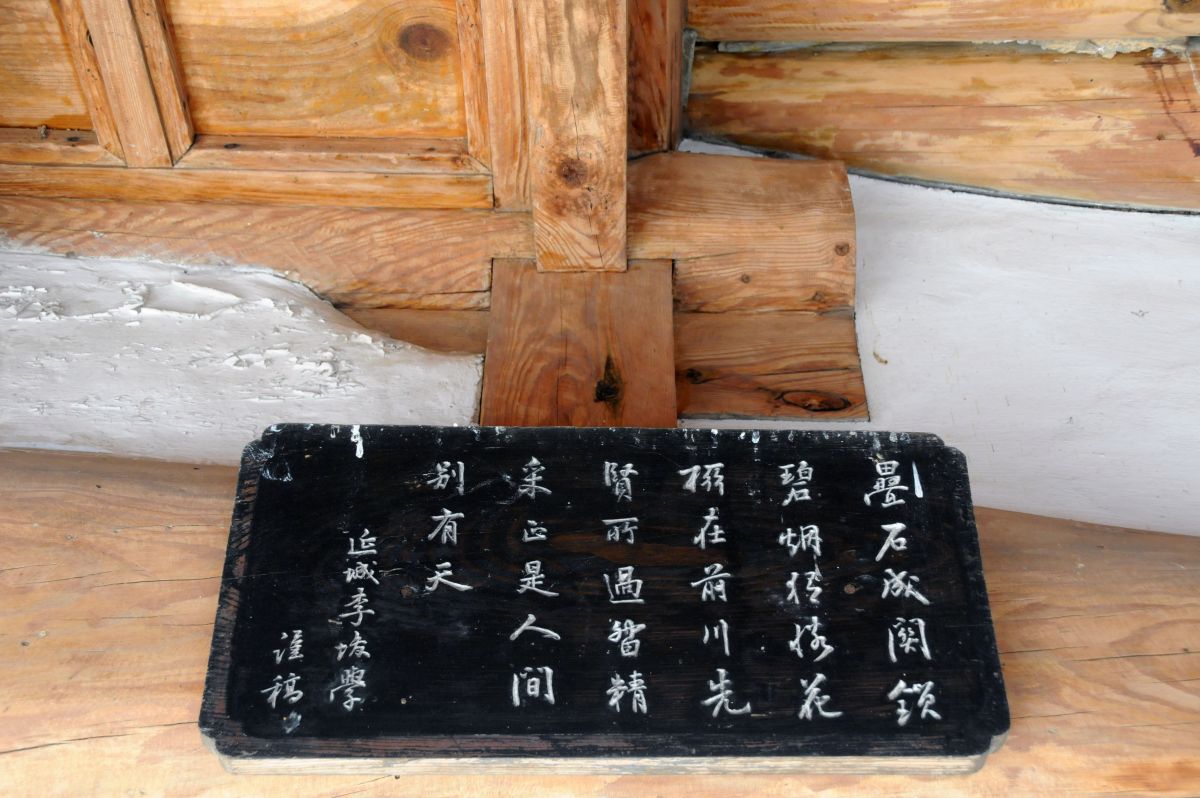 疊石成関鎖
碧烟猶花
在前川先
賢所過留精
采正是人間
別有天
延城李埈學
謹稿